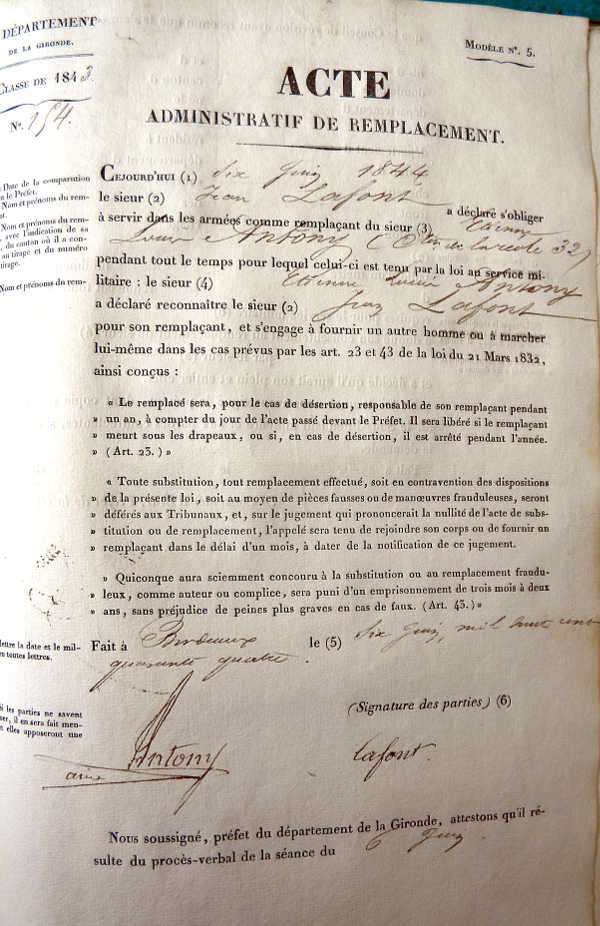 DÉPARTEMENT
DE LA GIRONDE.
CLASSE DE 1843.
N°. 154.
MODÈLE N°. 5.
ACTE
ADMINISTRATIF DE REMPLACEMENT.
CEJOURD'HUI (1) six Juin 1844
le sieur (2) Jean Lafont a déclaré s'obliger
à servir dans les armées comme remplaçant du sieur (3) Etienne
Louis Antony (32)
pendant tout le temps pour lequel celui-ci est tenu par la loi au service mi-
litaire : le sieur (4) Etienne Louis Antony
a déclaré reconnaître le sieur (2) Jean Lafont
pour son remplaçant, et s'engage à fournir un autre homme ou à marcher
lui-même dans les cas prévus par les art. 23 et 43 de la loi du 21 Mars 1832,
ainsi conçus :
« Le remplacé sera, pour le cas de désertion, responsable de son remplaçant pendant
» un an, à compter du jour de l'acte passé devant le Préfet. Il sera libéré si le remplaçant
» meurt sous les drapeaux, ou si, en cas de désertion, il est arrêté pendant l'année.
» (Art. 23.) »
« Toute substitution, tout remplacement effectué, soit en contravention des dispositions
» de la présente loi, soit au moyen de pièces fausses ou de manœuvres frauduleuses, seront
» déférés aux Tribunaux, et, sur le jugement qui prononcerait la nullité de l'acte de subs-
» titution ou de remplacement, l'appelé sera tenu de rejoindre son corps ou de fournir un
» remplaçant dans le délai d'un mois, à dater de la notification de ce jugement.
» Quiconque aura sciemment concouru à la substitution ou au remplacement fraudu-
» leux, comme auteur ou complice, sera puni d'un emprisonnement de trois mois à deux
» ans, sans préjudice de peines plus graves en cas de faux. (Art. 43.)»
Fait à Bordeaux le (5) six Juin, mil huit cent
quarante quatre.
(Signature des parties) (6)
Antony
ainé
Lafont.
Nous soussigné, préfet du département de la Gironde, attestons qu'il ré-
sulte du procès-verbal de la séance du 6 Juin
Date de la comparution
le Préfet.
Nom et prénoms du rem-
Nom et prénoms du rem-
avec l'indication de sa
du canton où il a con-
au tirage et du numéro
tirage.
Nom et prénoms du rem-
ettre la date et le mil-
en toutes lettres.
Si les parties ne savent
er, il en sera fait men-
elles apposeront une